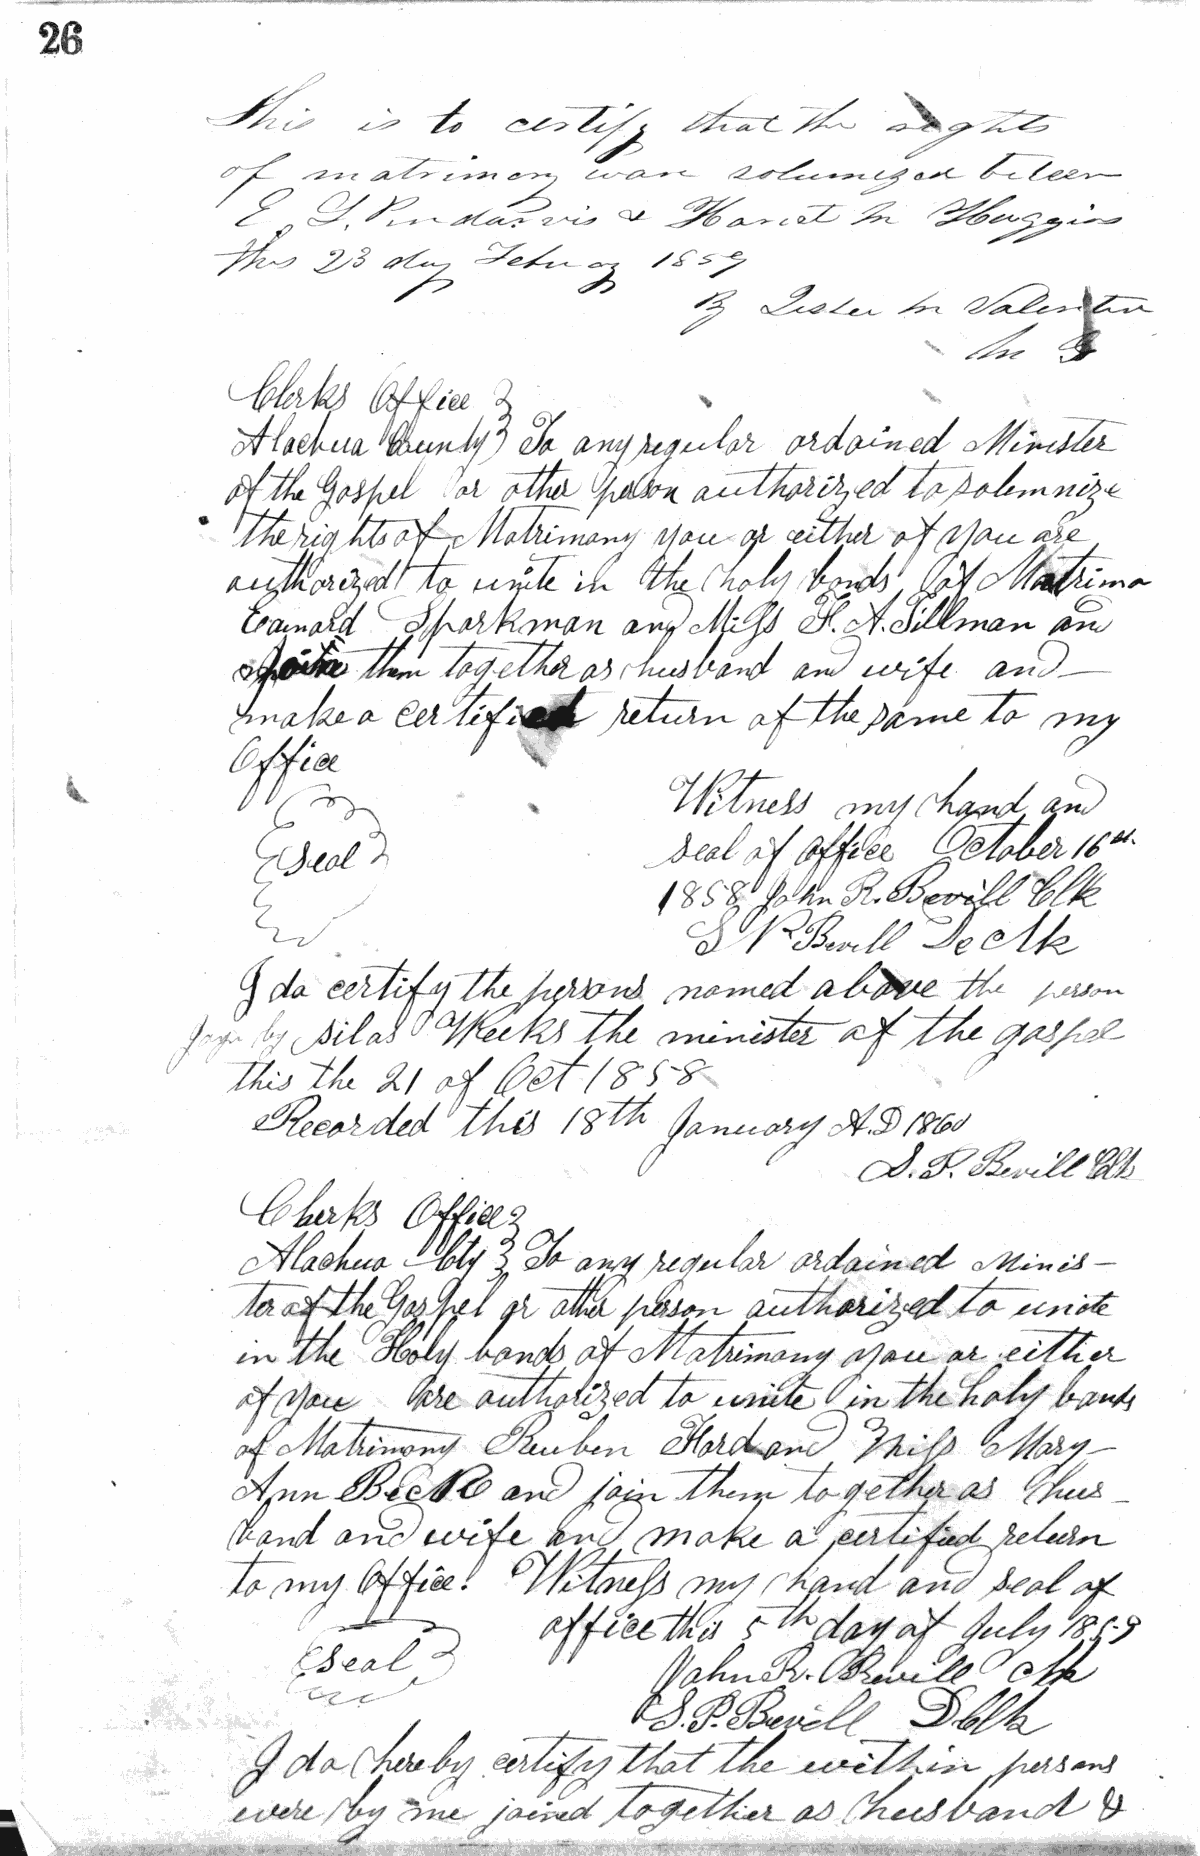 26
This is to certify that the rights
of matrimony ware solumized beteen
E. T. Pendarvis & Hariet M Huggins
this 23 day Februay 1859
By Lester M Valentin
M G
Clerks Office }
Alachua County } To any regular ordained Minister
of the Gospel or other person authorized to solemnize
the rights of Matrimony you or either of you are
authorized to unite in the holy bonds of Matrimo
Sparkman and Miss F. A. Tillman and
them together as husband and wife and
make a certified return of the same to my
Office
Witness my hand and
Seal
seal of office October 16th
1858 John R. Bevill Clk
S P Bevill De Clk
I do certify the persons named above the person
by Silas Weeks the minister of the gospel
this the 21 of Oct 1858
Recorded this 18th January A.D 1860
S. P. Bevill Clk
Clerks Office }
Alachua Cty } To any regular ordained Minis-
ter of the Gospel or other person authorized to unite
in the Holy bonds of Matrimony you or either
of you are authorized to unite in the holy bands
of Matrimony Reuben Hord and Miss Mary
Ann Beck and join them together as hus-
band and wife and make a certified return
to my Office. Witness my hand and seal of
office this 5th day of July 1859
Seal
John R. Bevill Clk
S. P. Bevill D Clk
I do hereby certify that the within persons
were by me joined together as husband &